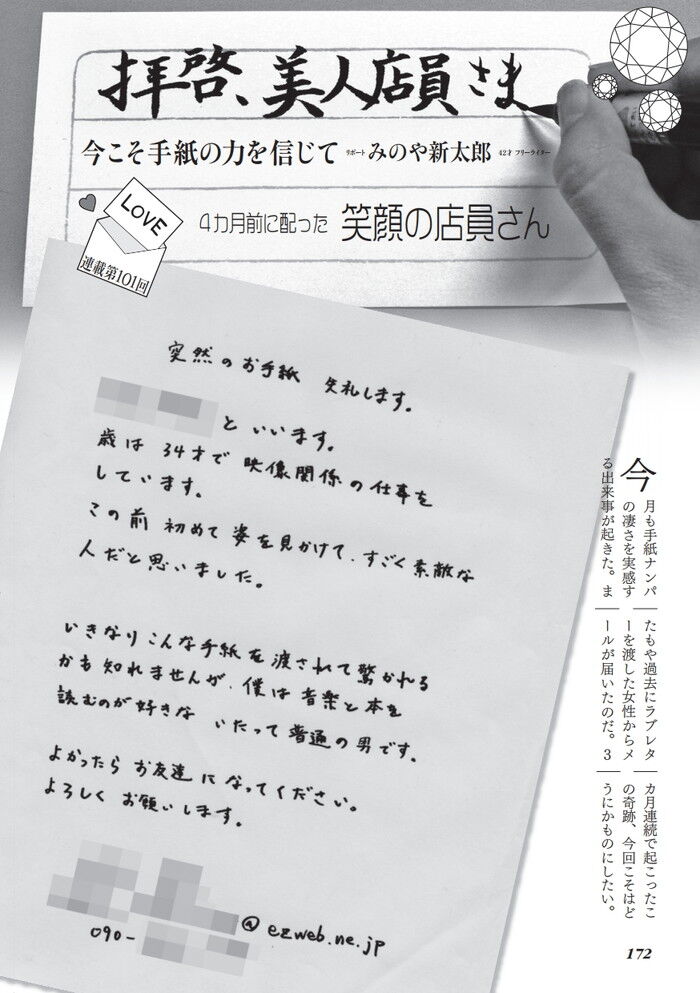 拝啓、美人店員さま
今こそ手紙の力を信じて リポート みのや新太郎 42才 フリーライター
4カ月前に配った 笑顔の店員さん
LOVE
連載第101回
突然のお手紙 失礼します。
といいます。
歳は 34才で 映像関係の仕事を
しています。
この前 初めて 姿を見かけて、すごく素敵な
人だと思いました。
いきなりこんな手紙を渡されて驚かれる
かも知れませんが、僕は音楽と本を
読むのが好きな いたって普通の男です。
よかったら お友達になってください。
よろしく お願いします。
@ezweb.ne.jp
090-
今月も手紙ナンパ
の凄さを実感す
る出来事が起きた。ま
たもや過去にラブレタ
ーを渡した女性からメ
ールが届いたのだ。3
カ月連続で起こったこ
の奇跡、今回こそはど
うにかものにしたい。
172